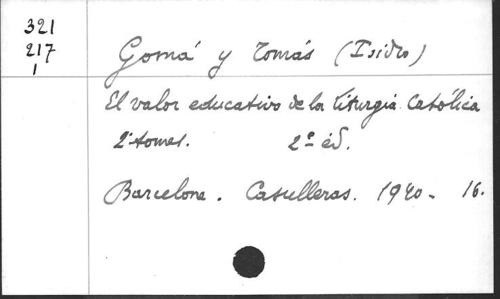 321
217
1
Gomá y Tomás (Isidro)
El valor educativo de la liturgia Católica
2 tomes. 2ª éd.
Barcelone. Casulleras. 1940 - 16.